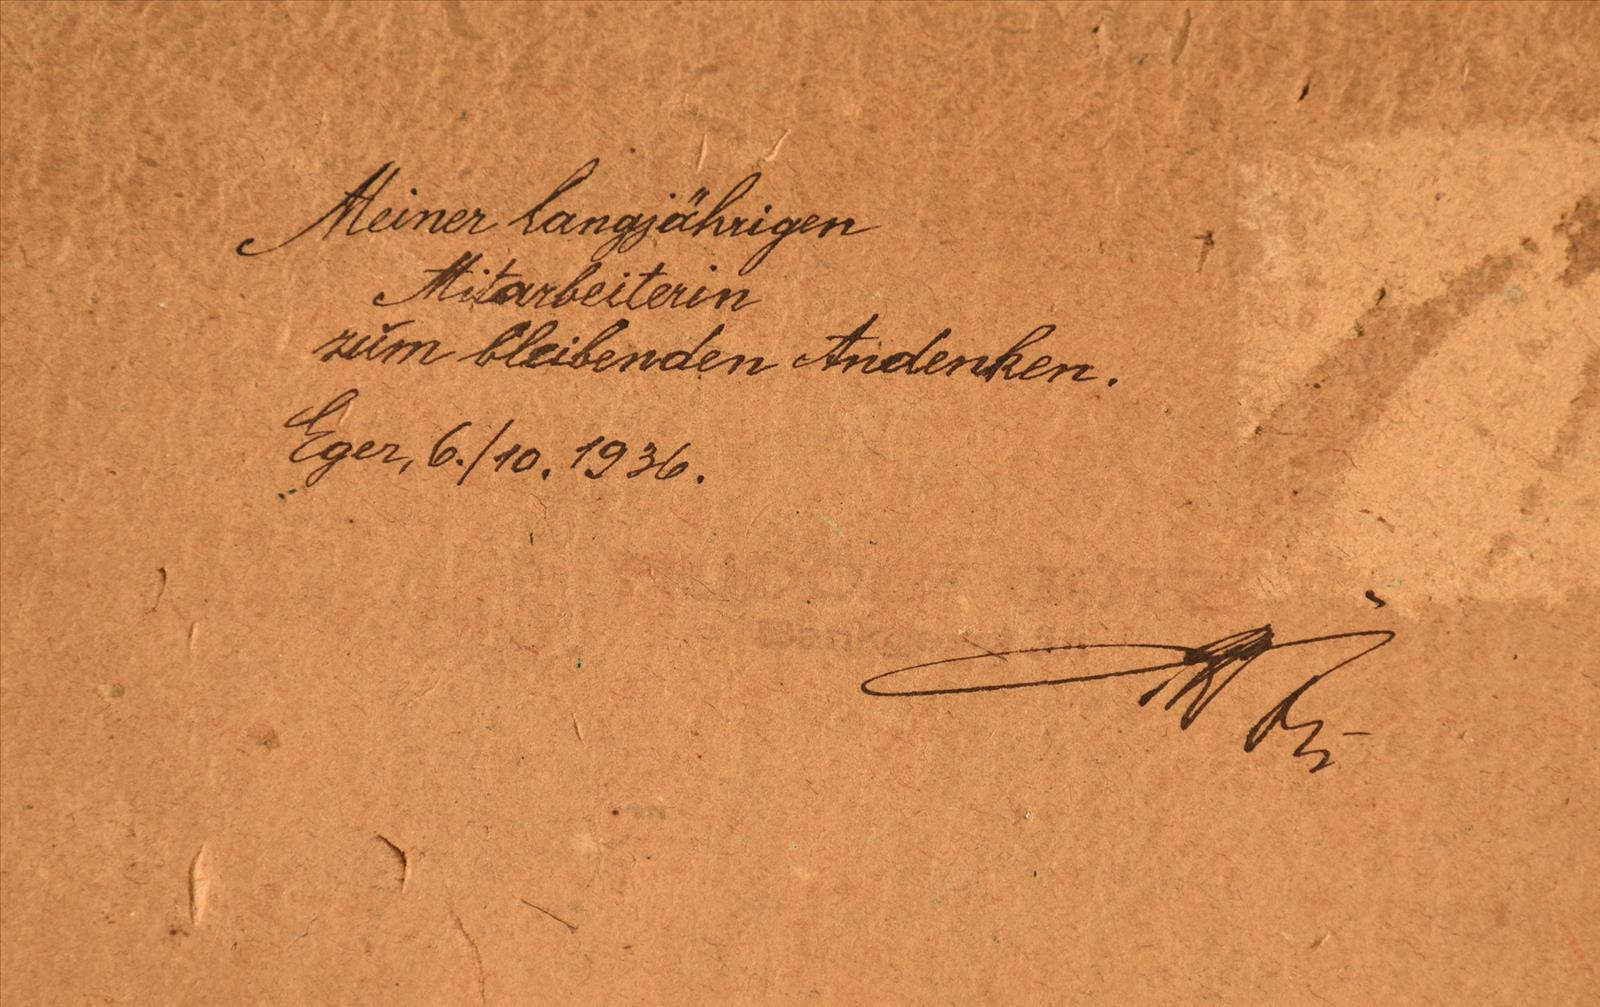 Meiner langjährigen
Mitarbeiterin
zum bleibenden Andenken.
Eger, 6./10. 1936.